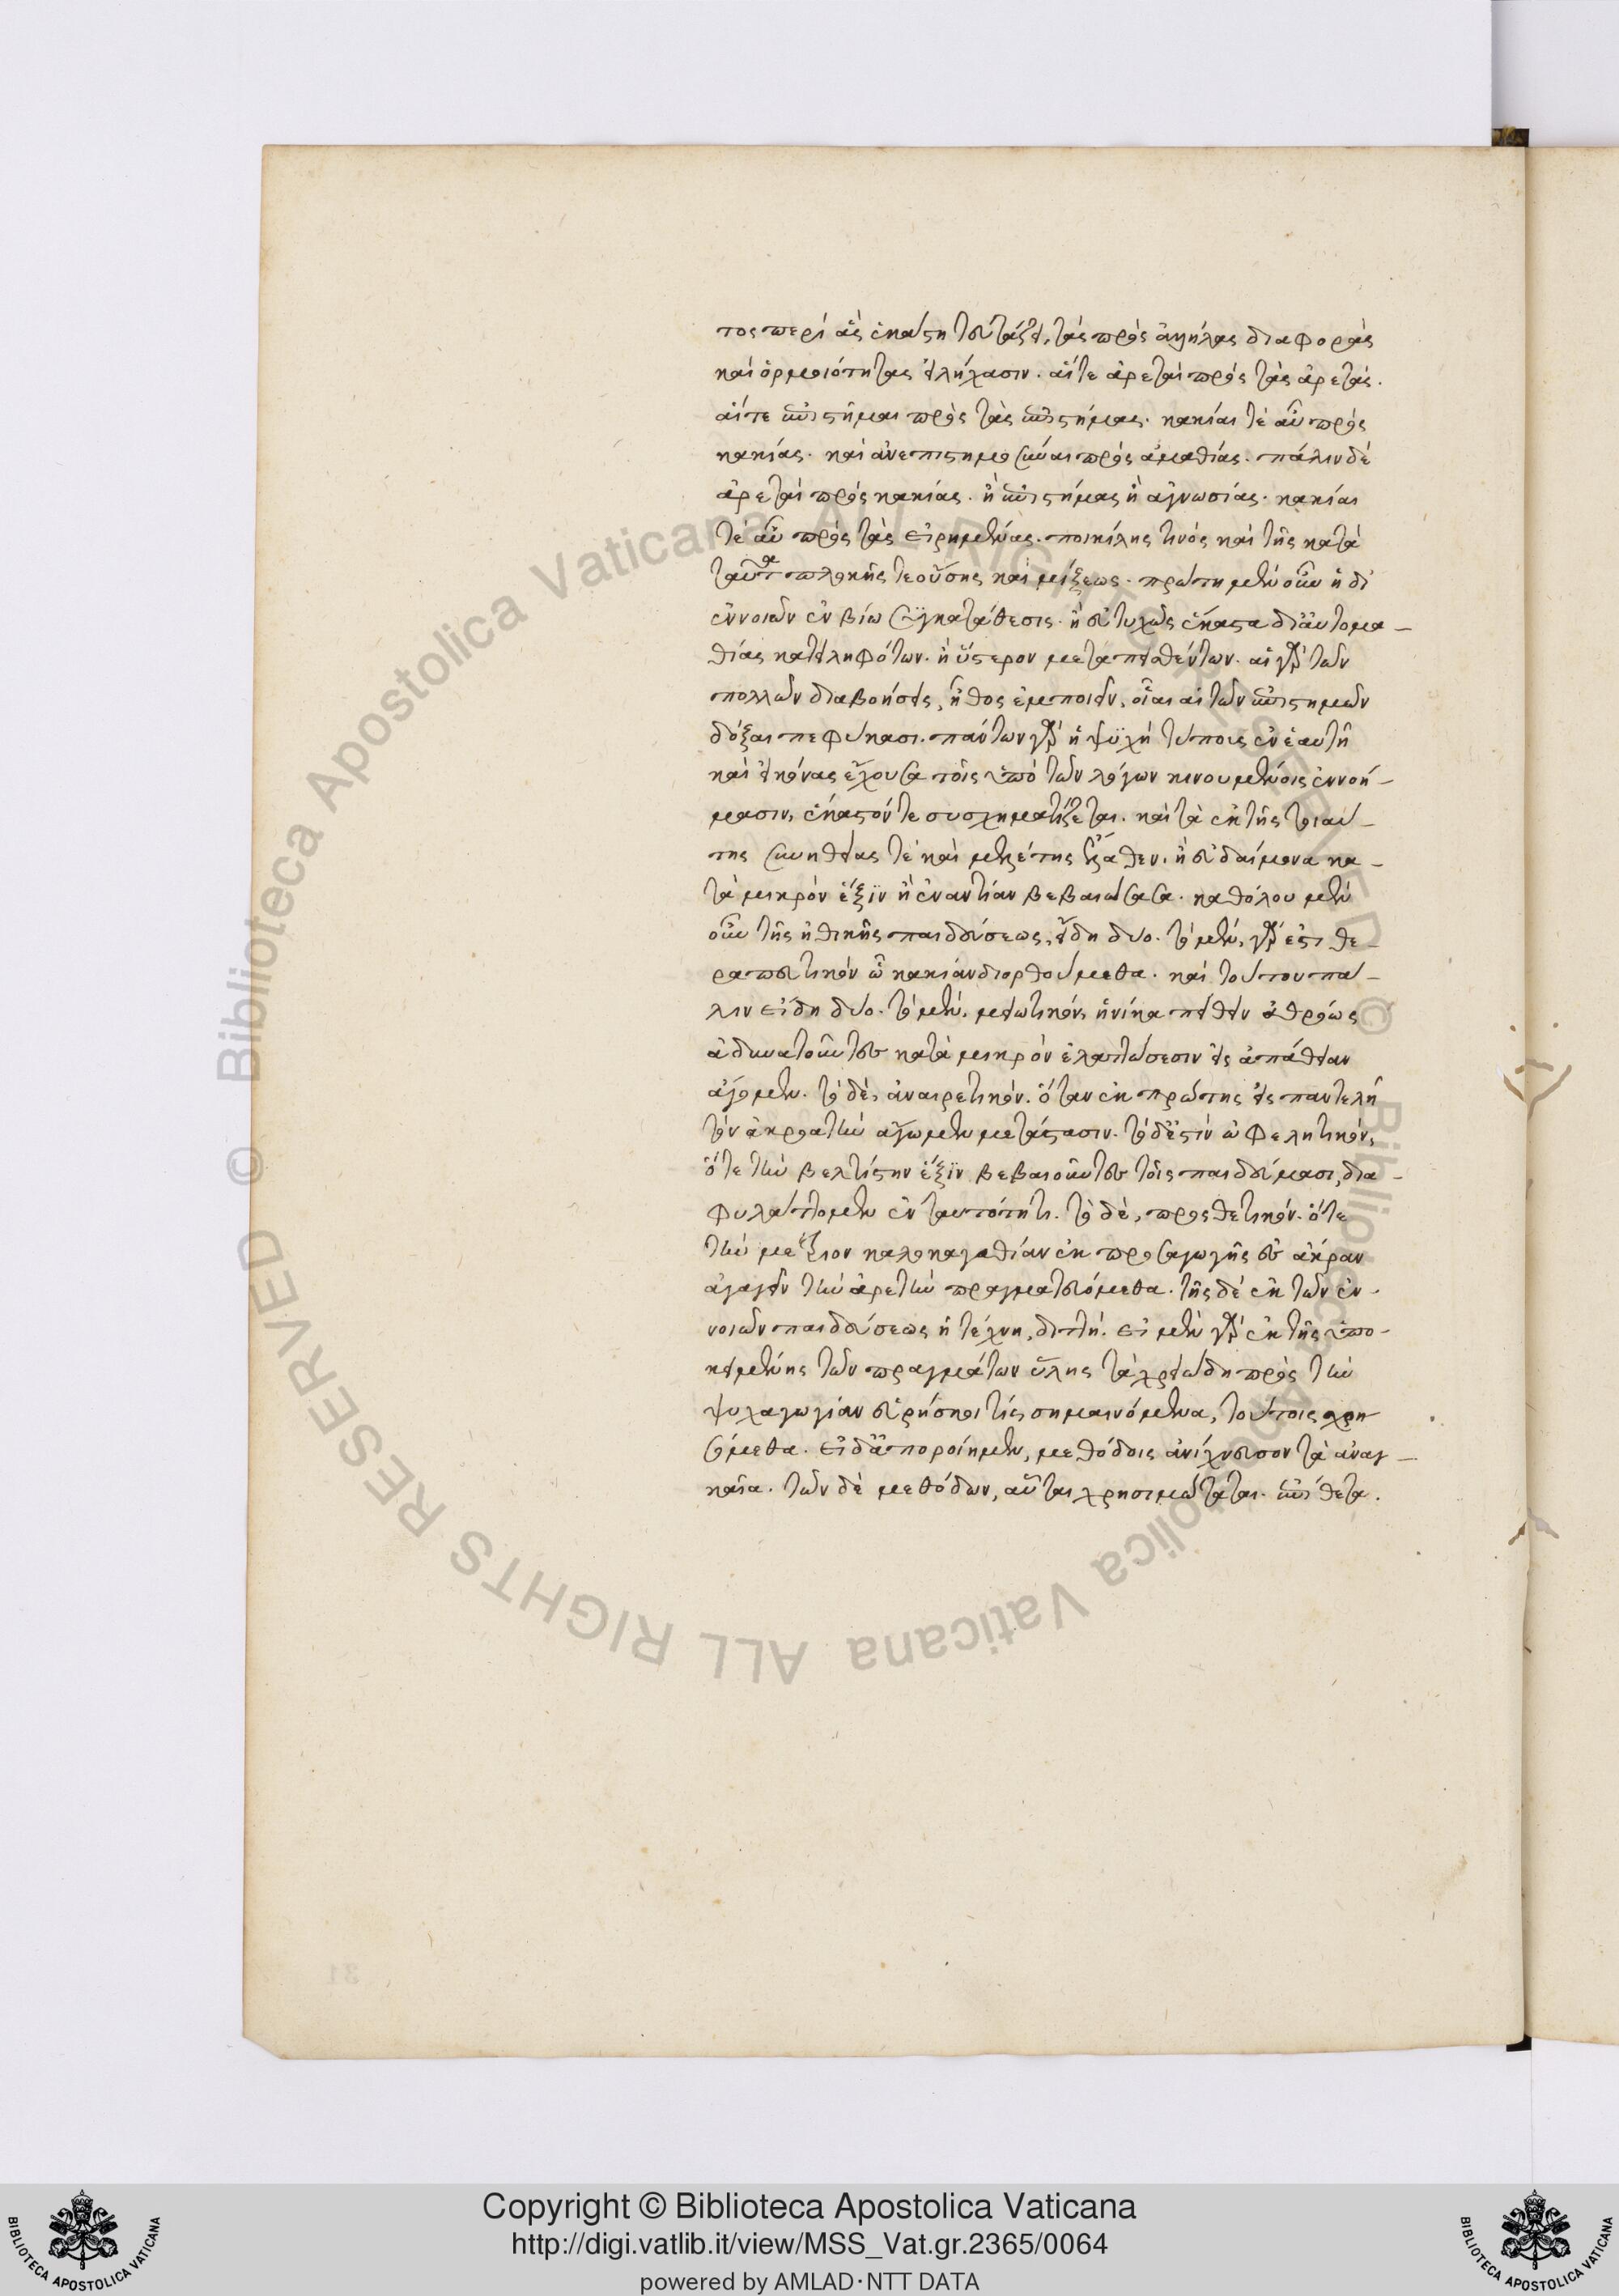 τος περὶ ἃς ἑκάστη τούτων, τὰς πρὸς ἀλλήλας διαφορὰς
καὶ ὁμοιότητας εἰλήχασιν. αἵτε ἀρεταὶ πρὸς τὰς ἀρετάς.
αἵτε ἐπιστῆμαι πρὸς τὰς ἐπιστήμας. κακίαι τὲ αὖ πρὸς
κακίας. καὶ ἀνεπιστημοσύναι πρὸς ἀμαθίας. πάλιν δὲ
ἀρεταὶ πρὸς κακίας. ἢ ἐπιστήμας ἢ ἀγνωσίας. κακίαι
τὲ αὖ πρὸς τὰς εἰρημένας. ποικίλης τινὸς καὶ τῆς κατὰ
ταῦτα πλοκῆς τε οὔσης καὶ μίξεως. πρώτη μὲν οὖν ἡ δι
ἐννοιῶν ἐν βίω συγκατάθεσις. ἢ εὐτυχῶς ἕκαστα δι αὐτομα-
θίας κατειληφότων. ἢ ὕστερον μεταπεισθέντων. αἱ γὰρ τῶν
πολλῶν διαβοήσεις, ἦθος ἐμποιεῖν, οἷαι αἱ τῶν ἐπιστημῶν
δόξαι πεφύκασι. πάντων γὰρ ἡ ψϋχὴ τύποις ἐν ἑαυτῇ
καὶ εἰκόνας ἔχουσα τοῖς ὑπὸ τῶν λόγων κινουμένοις ἐννοή-
μασιν, ἑκάστόν τε συσχηματίζεται. καὶ τὰ ἐκ τῆς τοιαύ-
της συνηθείας τὲ καὶ μελέτης ἔξωθεν. ἢ εὐδαίμονα κα-
τὰ μικρὸν ἕξϊν ἢ ἐναντίαν βεβαιώσασα. καθόλου μὲν
οὖν τῆς ἠθικῆς παιδεύσεως, εἴδη δύο. τὸ μὲν, γάρ ἐστι θε-
ραπευτικὸν ὧ κακίαν διορθούμεθα. καὶ τούτου πά-
λιν εἴδη δύο. τὸ μὲν, μειωτικὸν, ἡνίκα πείθειν ἀθρόως
ἀδυνατοῦντες κατὰ μικρὸν ἐλαττώσεσιν εἰς ἀπάθειαν
ἄγομεν. τὸ δὲ, ἀναιρετικόν. ὅταν ἐκ πρώτης εἰς παντελῆ
τὸν ἀκροατὴν ἄγωμεν μετάστασιν. τὸ δέ ἐστὶν ὠφελητικὸν,
ὅτε τὴν βελτίστην ἕξϊν βεβαιοῦντες τοῖς παιδεύμασι, δια-
φυλάττομεν ἐν ταυτότητι. τὸ δὲ, προσθετικόν. ὅτε
τὴν μέτριον καλοκαγαθίαν ἐκ προσαγωγῆς ἐπ' ἄκραν
ἀγαγεῖν τὴν ἀρετὴν πραγματευόμεθα. τῆς δὲ ἐκ τῶν ἐν-
νοιῶν παιδεύσεως ἡ τέχνη, διττή. εἰ μὲν γὰρ ἐκ τῆς ὑπο-
κειμένης τῶν πραγμάτων ὕλης τὰ χρειώδη πρὸς τὴν
ψυχαγωγίαν εὑρήσκοι τίς σημαινόμενα, τούτοις χρη-
σόμεθα. εἰ δ' ἀποροίημεν, μεθόδοις ἀνίχνευσον τὰ ἀναγ-
καῖα. τῶν δὲ μεθόδων, αὗται χρησιμώταται. ἐπίθετα.
31